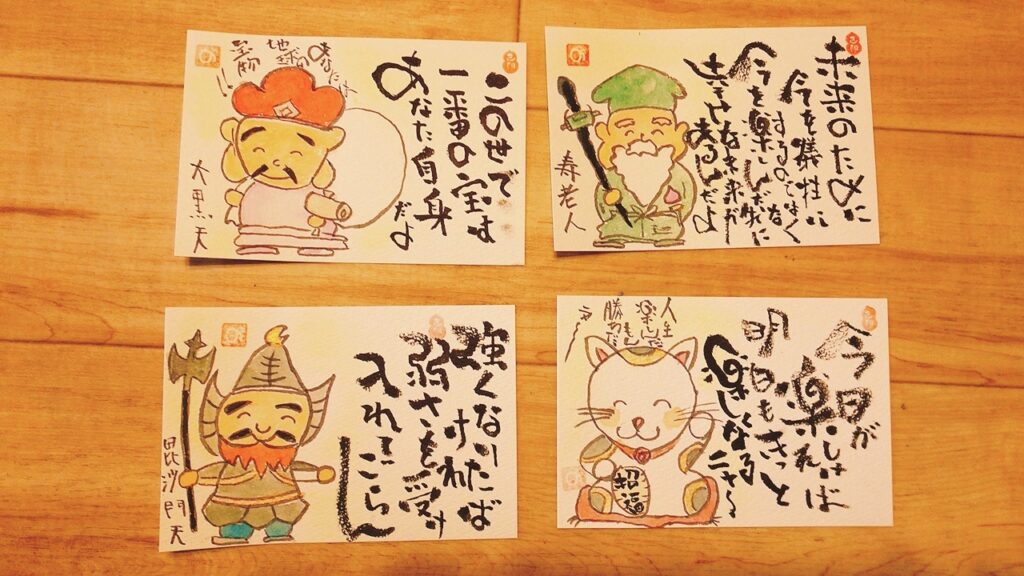 この世で
一番の宝は
あなた自身
だよ
あなたは
地球の
宝物!!
大黒天
未来のために
今を犠牲に
するのではなく
今を楽しんだ先に
な未来が
あるんだよ
寿老人
強くなりた
ければ
弱さを受け
入れてごらん
毘沙門天
今日が
楽しければ
明日もきっと
楽しくなる
ニャ〜
人生
楽しんだ
勝ち
招福